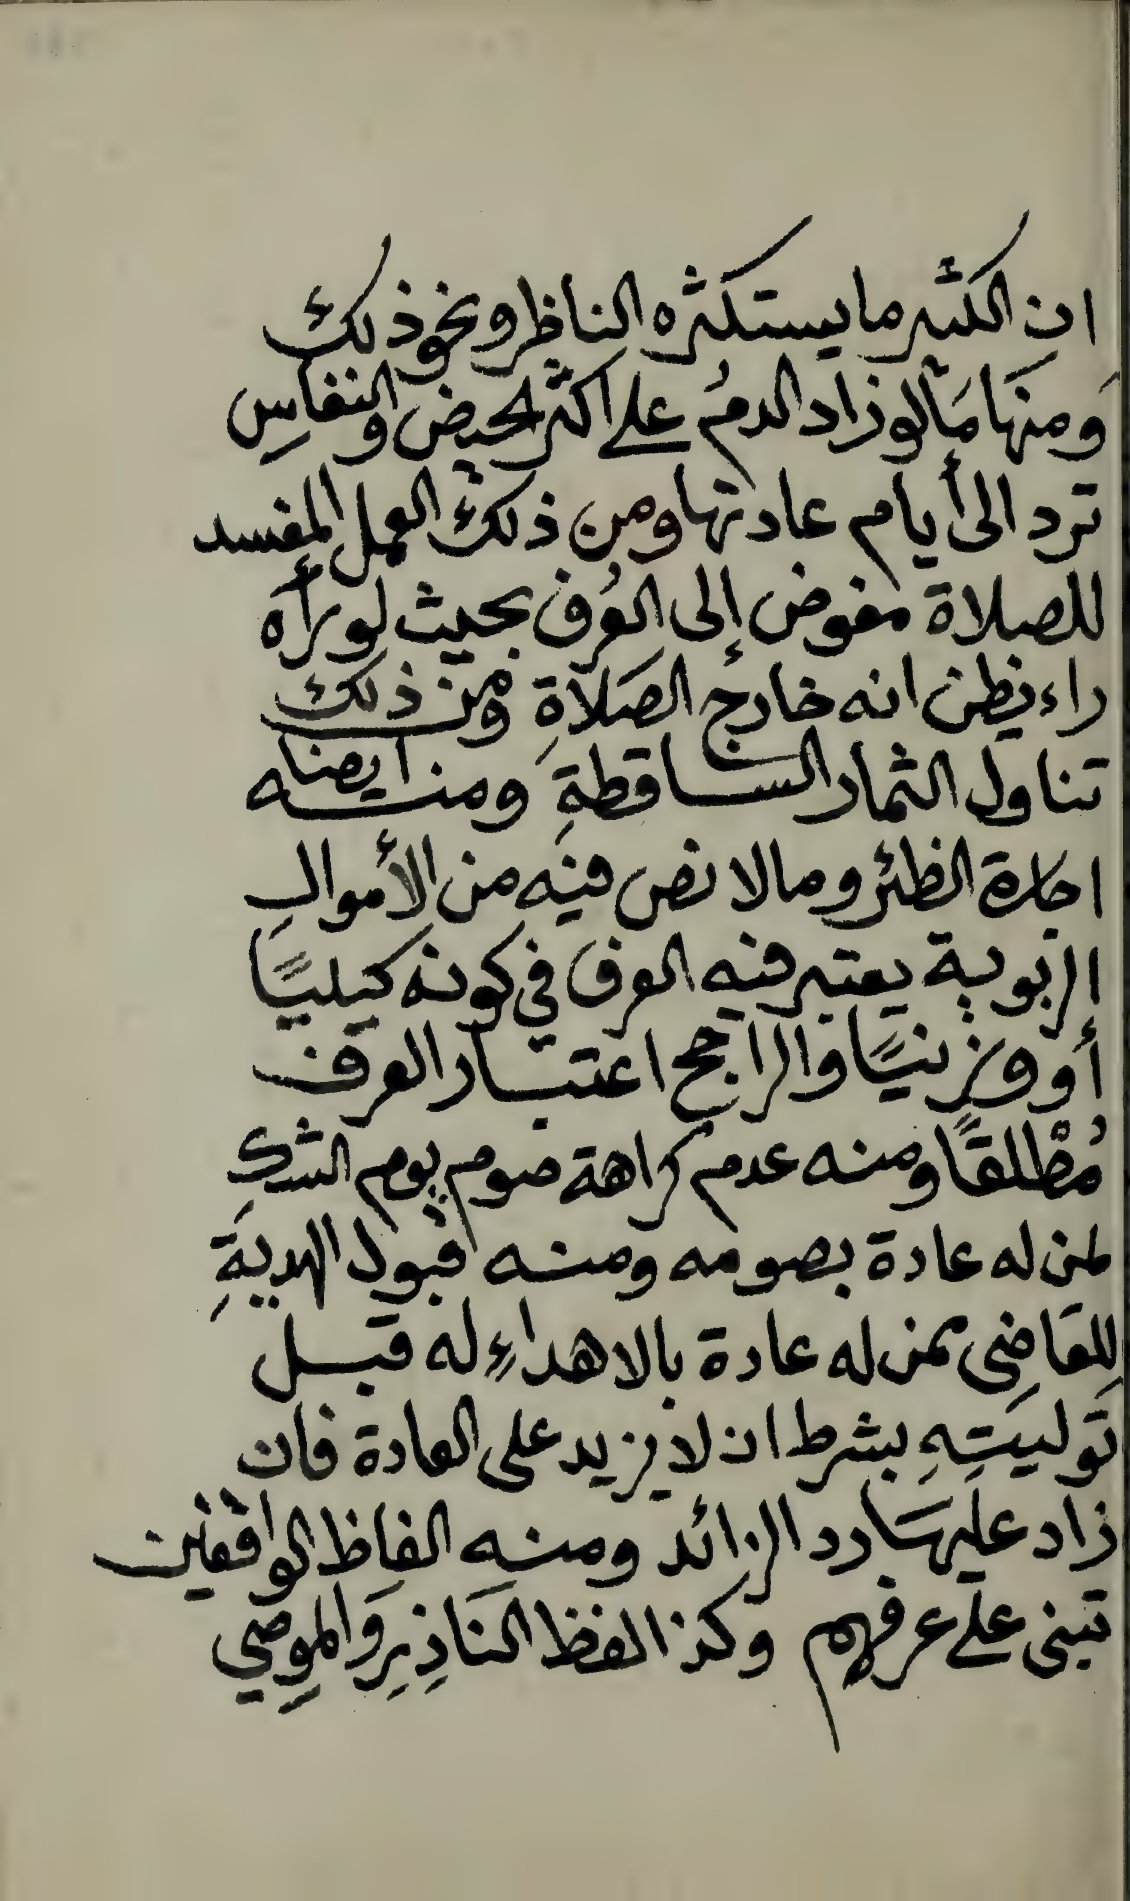 ان الكثير ما يستكثره الناظر ونحو ذلك
وَمنها مَا لو زاد الدمُ على اكثر الحيض والنفاسِ
ترد الى أيام عادتها ومن ذلك العمل المفسد
للصلاة مفوض إلى العُرف بحيث لو رأه
راء يظن انه خارج الصَلاةِ ومن ذلك
تناول الثمار الساقطةِ ومنه ايضا
اجارة الظئر ومالا نص فيه من الأموالِ
الربوية يعتبر فيه العرف في كونه كيليًا
أو وزنيًا والراجح اعتبار العرف
مُطْلقًا ومنه عدم كراهة صوم يوم الشكِ
لمن له عادة بصومه ومنه قبول الهديةِ
للقاضِى ممن له عادة بالاهداءِ له قبل
تَوليَتِهِ بشرط ان لا يزيد على العادة فان
زاد عليهَا رد الزائد ومنه الفاظ الواقفين
تبنى على عرفهم وكذا لفظ النَاذِرِ وَالموِصِي